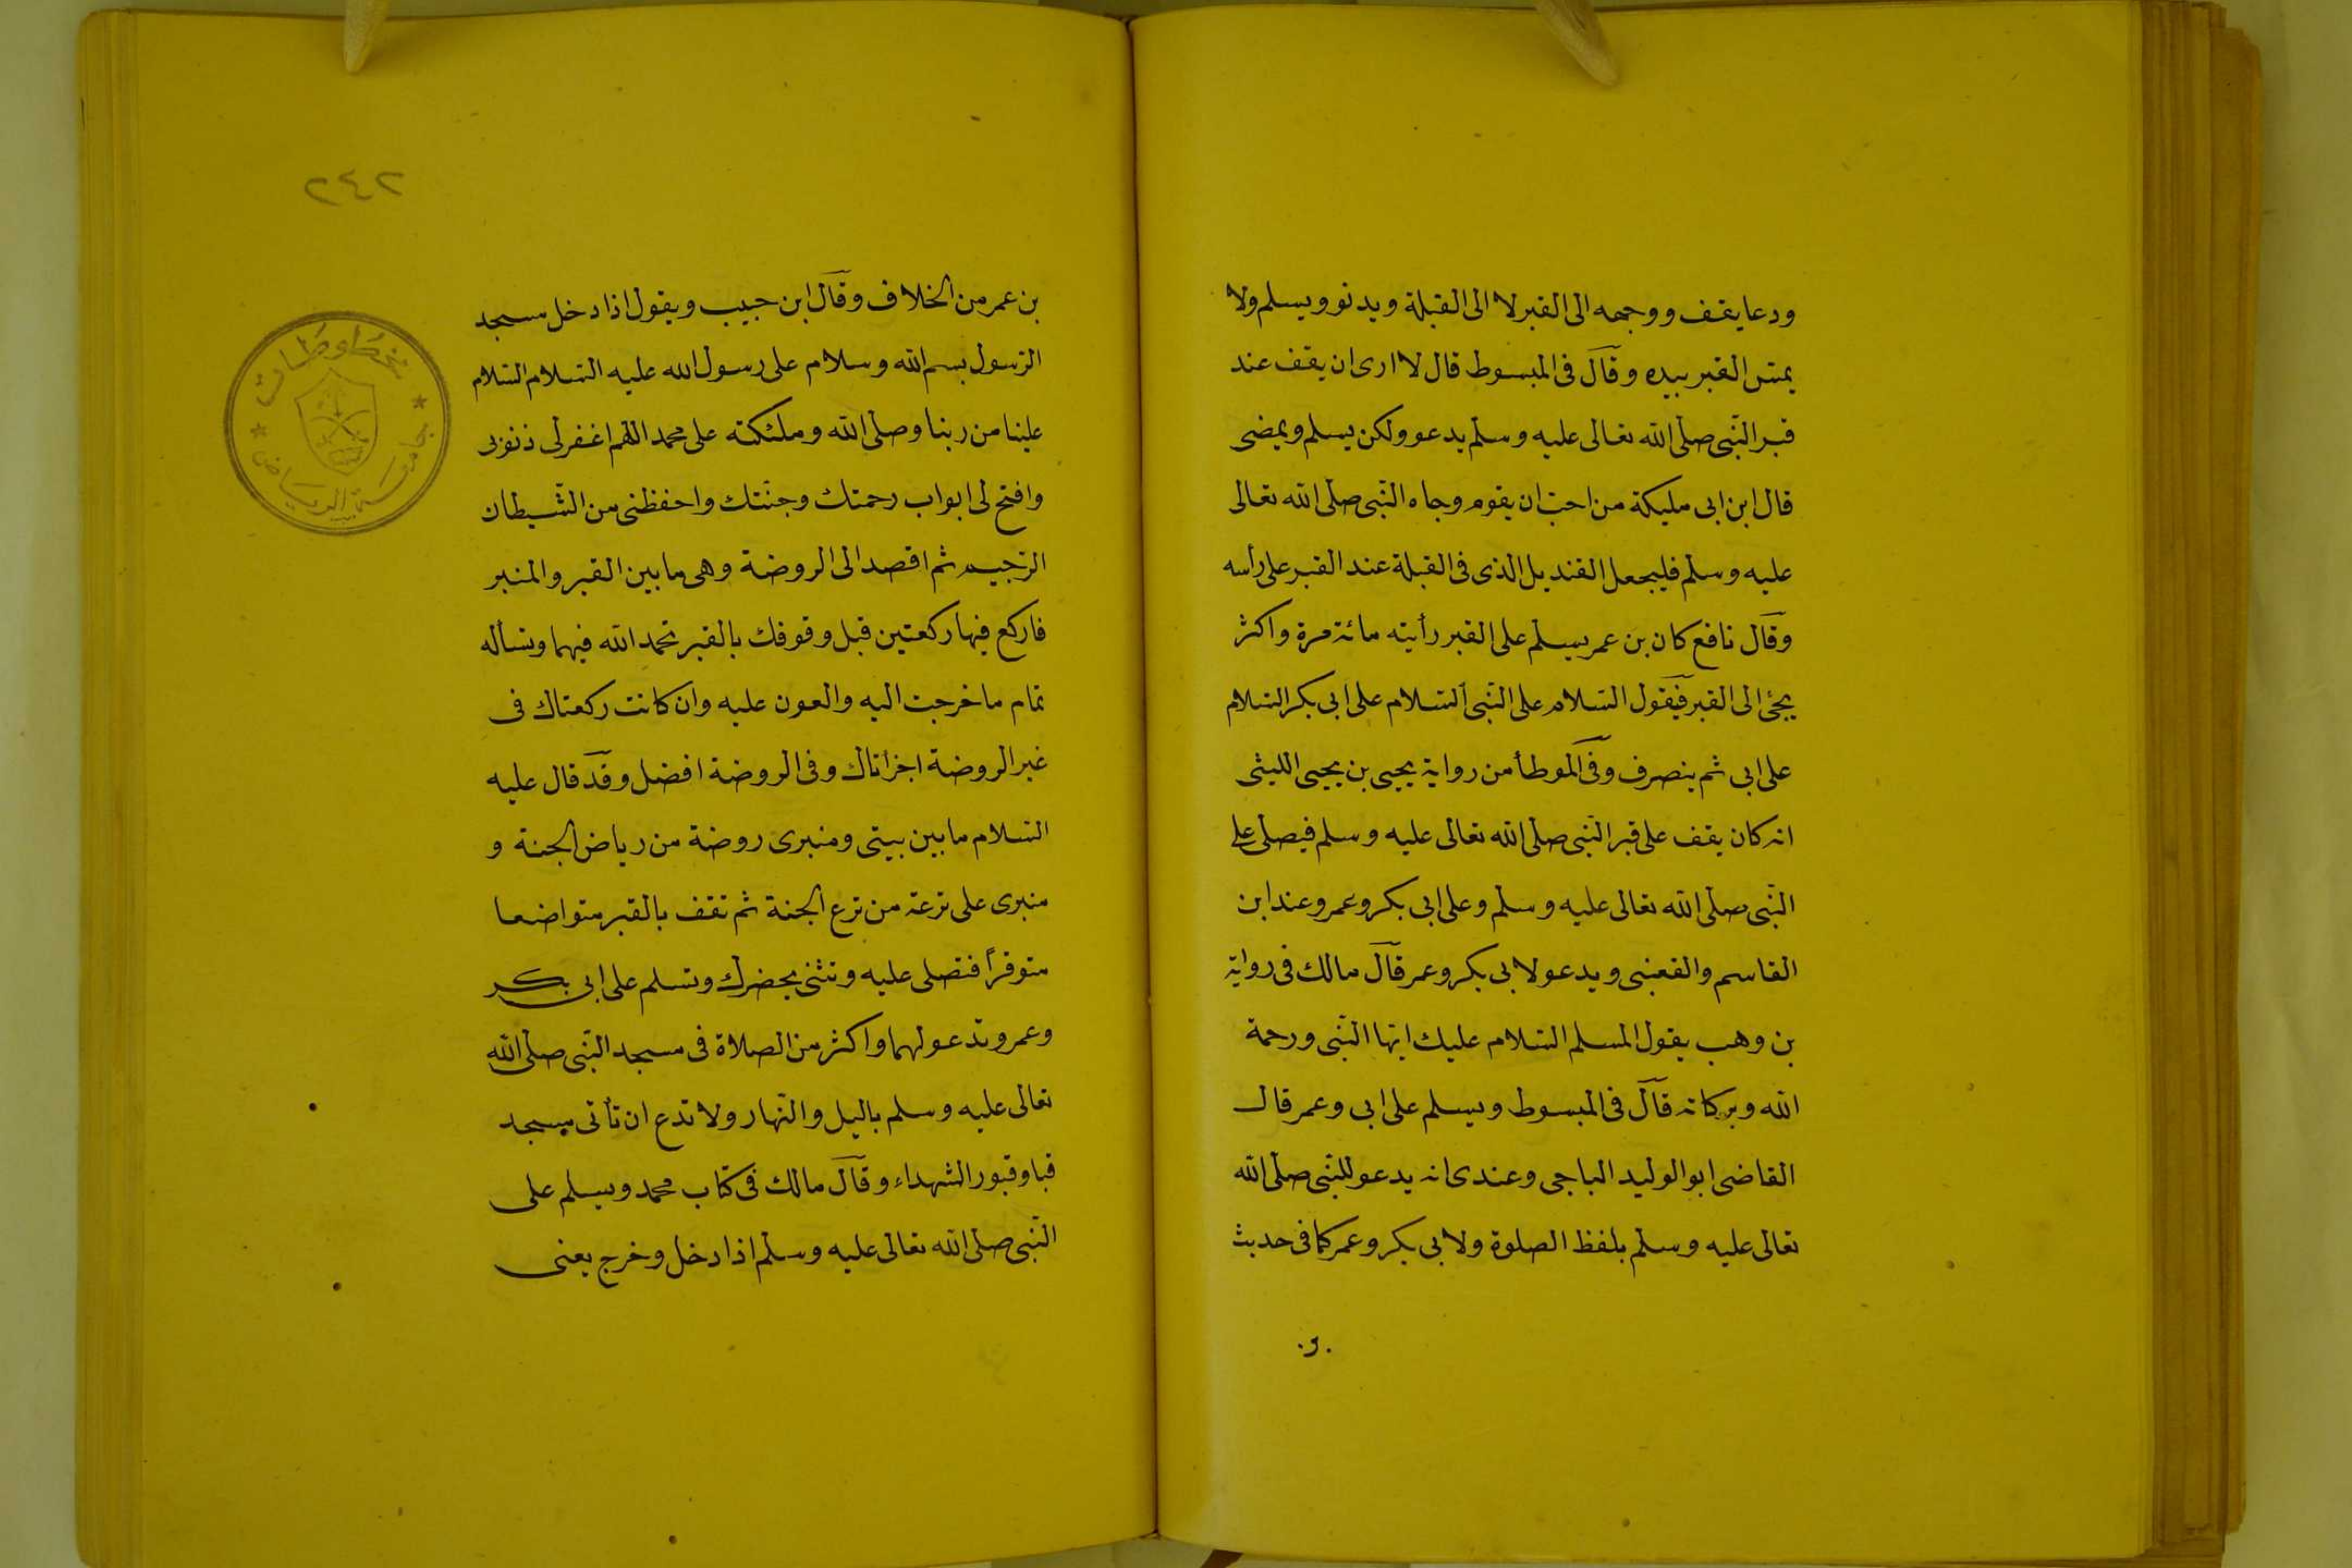 ودعا يقف ووجهه الى القبر لا الى القبلة ويدنو ويسلم ولا
يمسّ القبر بيده وقال فى المبسوط قال لا ارى ان يقف عند
قبر النّبى صلّى الله تعالى عليه وسلّم يدعو ولكن يسلم ويمضى
قال ابن ابى مليكة من احبّ ان يقوم وجاه النّبى صلّى الله تعالى
عليه وسلّم فليجعل القنديل الذى فى القبلة عند القبر على رأسه
وقال نافع كان بن عمر يسلّم على القبر رأيته مائة مرة واكثر
يجئ الى القبر فيقول السّلام على النّبى السّلام على ابى بكر السّلام
على ابى ثم ينصرف وفى الموطأ من رواية يحيى بن يحيى الليثى
انه كان يقف على قبر النّبى صلّى الله تعالى عليه وسلم فيصلّى على
النّبى صلّى الله تعالى عليه وسلّم وعلى ابى بكر وعمر وعند ابن
القاسم والقعنبى ويدعو لابى بكر وعمر قال مالك فى رواية
بن وهب يقول المسلم السّلام عليك ايّها النّبى ورحمة
الله وبركاته قال فى المبسوط ويسلم على ابى وعمر قال
القاضى ابو الوليد الباجى وعندى انه يدعو للنّبى صلّى الله
تعالى عليه وسلّم بلفظ الصلوة ولابى بكر وعمر كما فى حديث
٢٤٢
بن عمر من الخلاف وقال ابن حبيب ويقول اذا دخل مسجد
الرّسول بسم الله وسلام على رسول الله عليه السّلام السّلام
علينا من ربنا وصلّى الله وملئكته على محمد اللّهم اغفر لى ذنوبى
وافتح لى ابواب رحمتك وجنّتك واحفظنى من الشّيطان
الرّجيم ثم اقصد الى الروضة وهى ما بين القبر والمنبر
فاركع فيها ركعتين قبل وقوفك بالقبر تحمد الله فيهما وتسأله
تمام ما خرجت اليه والعون عليه وان كانت ركعتاك فى
غير الروضة اجزأتاك وفى الروضة افضل وقد قال عليه
السّلام ما بين بيتى ومنبرى روضة من رياض الجنة و
منبرى على ترعة من ترع الجنة ثم تقف بالقبر متواضعا
متوقرًا فتصلى عليه وتثنى بحضرك وتسلم على ابى بكر
وعمر وتدعو لهما واكثر من الصلاة فى مسجد النّبى صلّى الله
تعالى عليه وسلم باليل والنّهار ولا تدع ان تأتى مسجد
قبا وقبور الشهداء وقال مالك فى كتاب محمد ويسلم على
النّبى صلّى الله تعالى عليه وسلّم اذا دخل وخرج يعنى
مخطوطات
جامعة الرياض